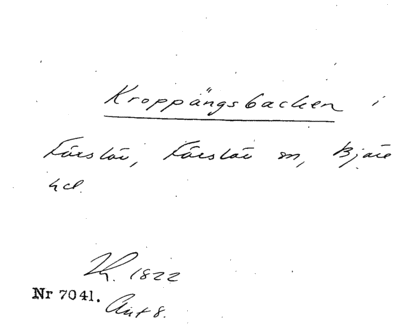 Kroppängsbacken i
Förslöv, Förslöv sn, Bjäre
hd.
1822
Nr 7041. Akt 8.